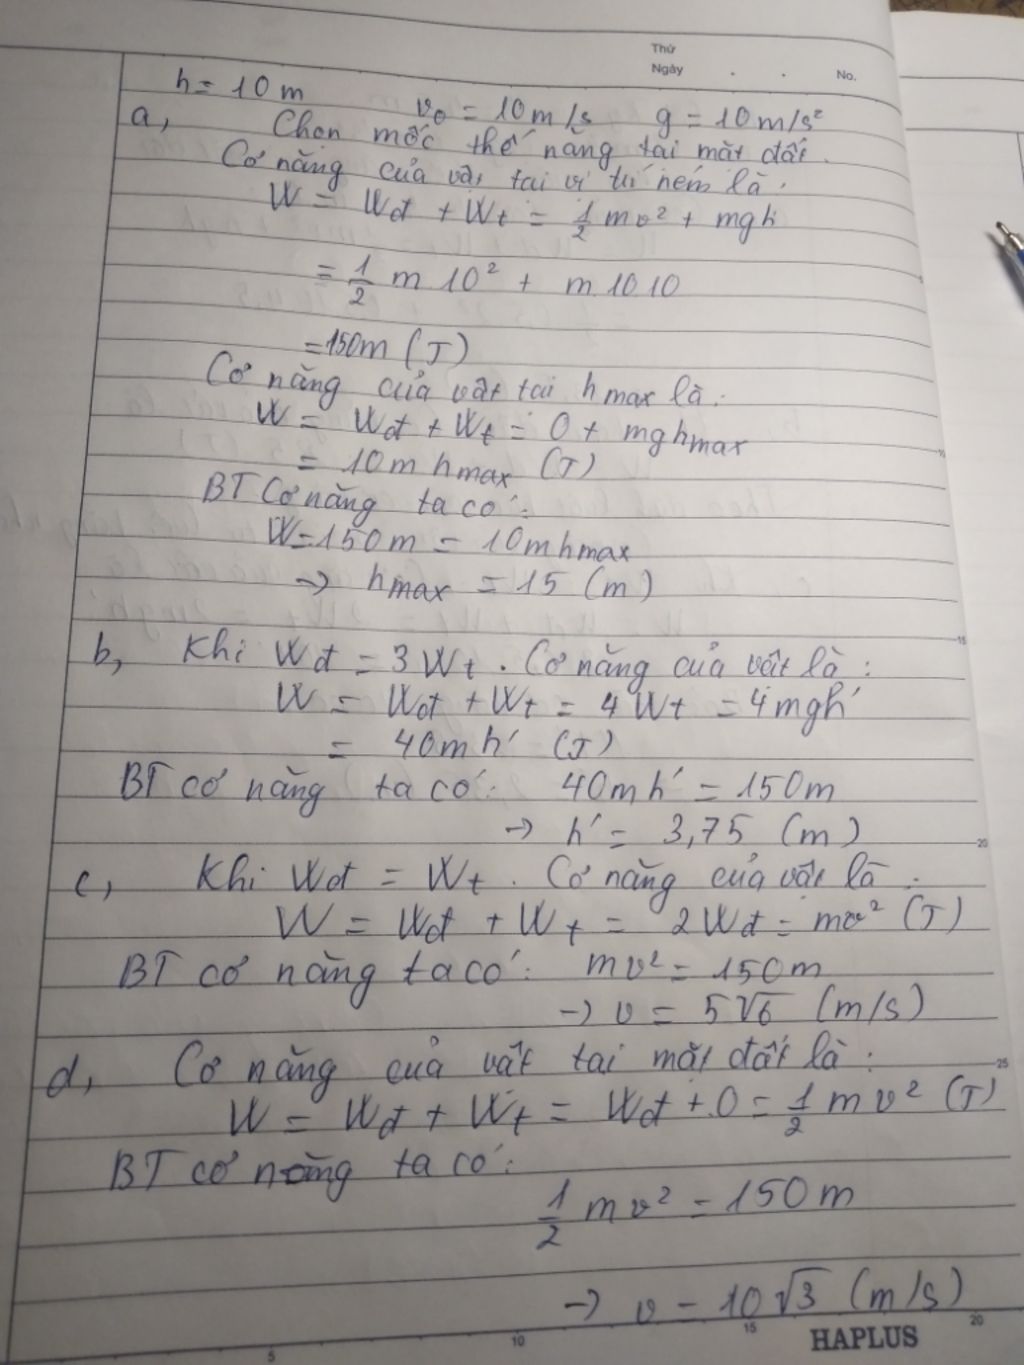 Thứ
Ngày . . No.
h = 10 m v₀ = 10 m/s g = 10 m/s²
a, Chọn mốc thế năng tại mặt đất.
Cơ năng của vật tại vị trí ném là:
W = Wđ + Wt = 1/2 mv² + mgh
= 1/2 m.10² + m.10.10
= 150m (J)
Cơ năng của vật tại hmax là:
W = Wđ + Wt = 0 + mghmax
= 10m hmax (J)
BT Cơ năng ta có:
W = 150m = 10mhmax
→ hmax = 15 (m)
b, Khi Wđ = 3Wt. Cơ năng của vật là:
W = Wđ + Wt = 4Wt = 4mgh'
= 40mh' (J)
BT cơ năng ta có: 40mh' = 150m
→ h' = 3,75 (m)
c, Khi Wđ = Wt. Cơ năng của vật là:
W = Wđ + Wt = 2Wđ = mv² (J)
BT cơ năng ta có: mv² = 150m
→ v = 5√6 (m/s)
d, Cơ năng của vật tại mặt đất là:
W = Wđ + Wt = Wđ + 0 = 1/2 mv² (J)
BT cơ năng ta có:
1/2 mv² = 150m
→ v = 10√3 (m/s)
5 10 15 20
HAPLUS